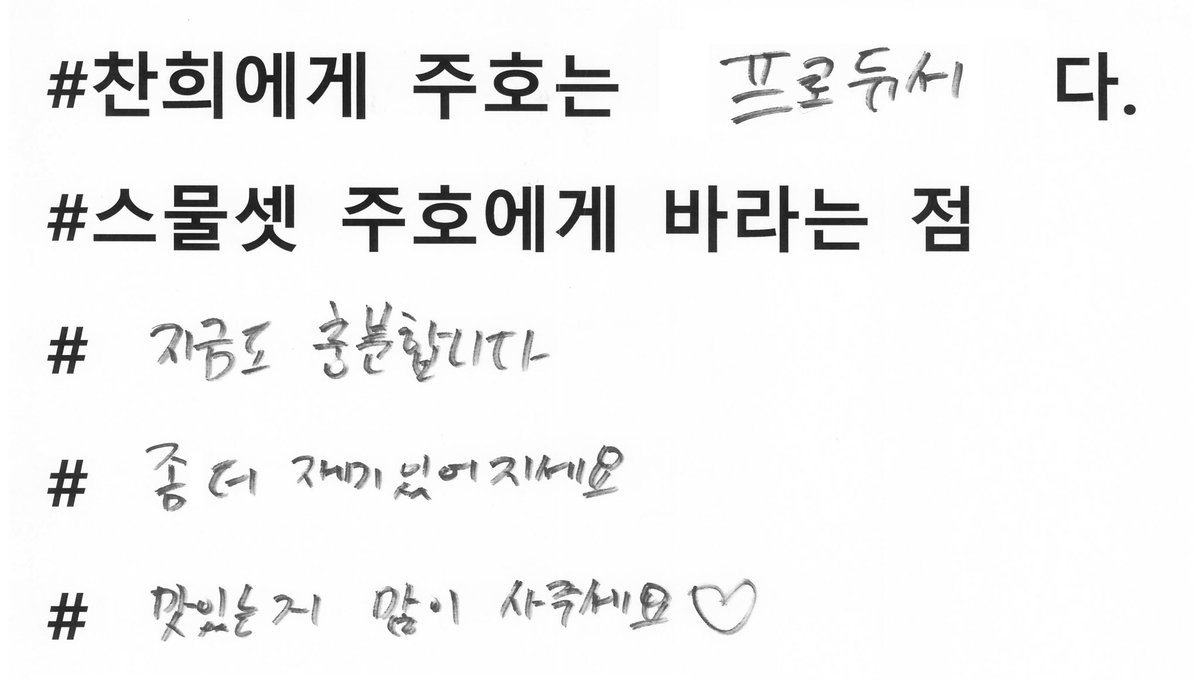 #찬희에게 주호는 프로듀서 다.
#스물셋 주호에게 바라는 점
# 지금도 충분합니다
# 좀 더 재미있어지세요
# 맛있는거 많이 사주세요♡